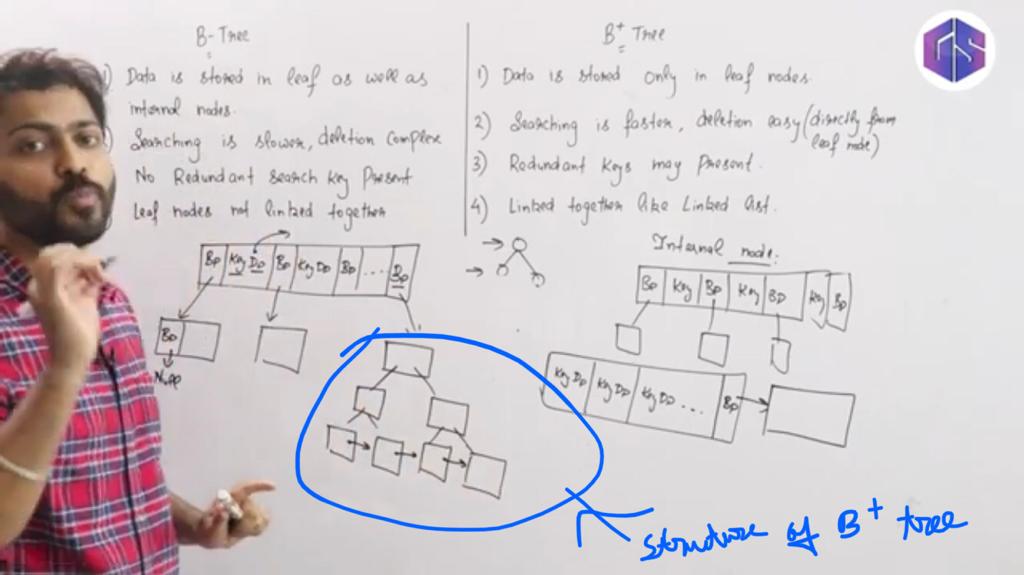 B-Tree
1) Data is stored in leaf as well as
internal nodes.
Searching is slower, deletion complex
No Redundant search key Present
Leaf nodes not linked together
Bp Key Dp Bp Key Dp Bp .... Bp
Bp
B+ Tree
1) Data is stored only in leaf nodes.
2) Searching is faster, deletion easy (directly from
leaf node)
3) Redundant keys may present.
4) Linked together like Linked list.
Internal node:
Bp Key Bp Key Bp Key Bp
Key Dp Key Dp Key Dp ... Bp
structure of B+ tree